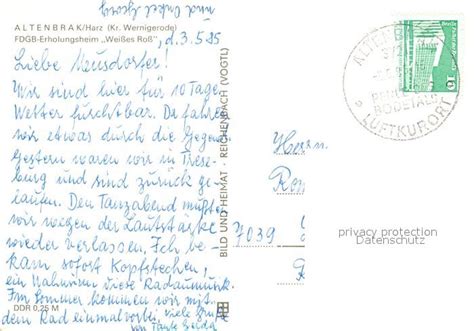 und Onkel Georg
ALTENBRAK/Harz (Kr. Wernigerode)
FDGB-Erholungsheim „Weißes Roß"
d. 3.5.85
Liebe Neusdorfer!
Wir sind hier für 10 Tage.
Wetter furchtbar. Da fahren
wir etwas durch die Gegend
Gestern waren wir in Trese-
burg und sind zurück ge-
laufen. Den Tanzabend mußten
wir wegen der Lautstärke
wieder verlassen. Ich be-
kam sofort Kopfstechen,
ein Wahnsinn diese Radaumusik.
Im Sommer kommen wir mit
dem Rad einmal vorbei. viele
von Tante Gelda
DDR 0,25 M
BILD UND HEIMAT · REICHENBACH (VOGTL)
ALTENB
BODETALS
LUFTKUROR
10
Herrn
7039
privacy protection
Datenschutz